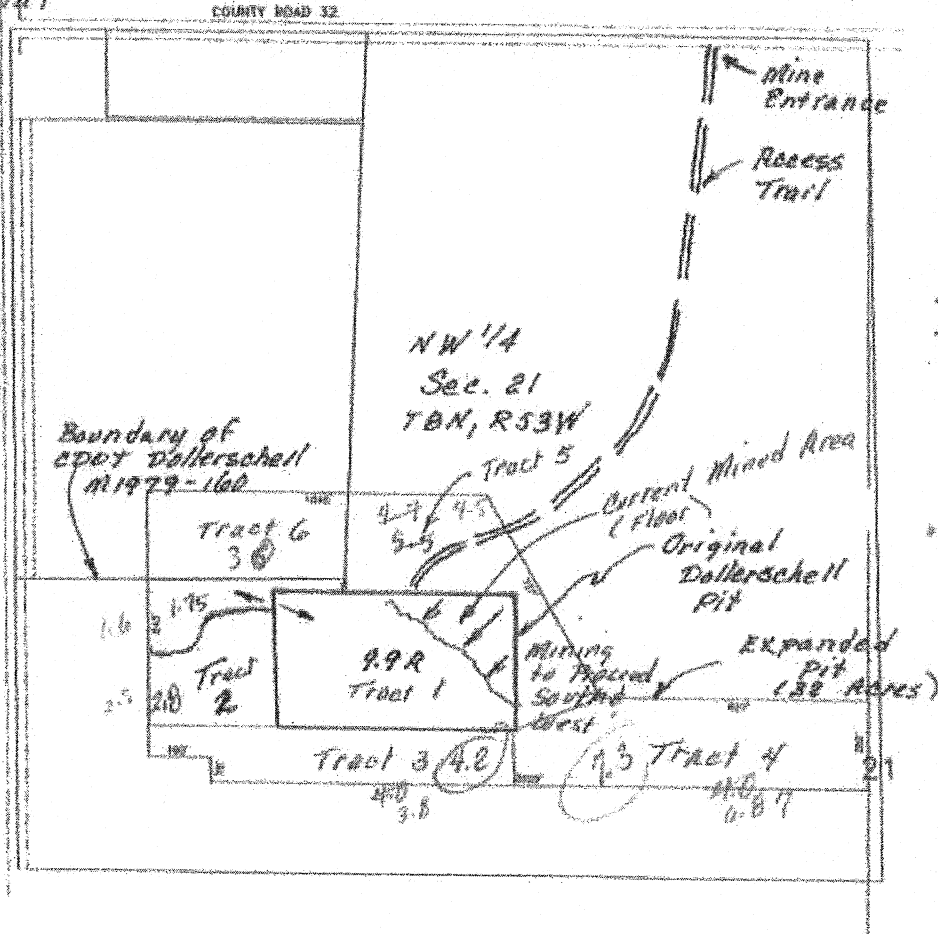 COUNTY ROAD 32
Mine
Entrance
Access
Trail
NW 1/4
Sec. 21
T8N, R53W
Boundary of
CDOT Dollerschell
M1979-160
Tract 5
Current Mined Area
(Floor
Original
Dollerschell
Pit
Tract 6
3
4.7 4.5
5.5
1.75
1.6
9.9 A
Tract 1
Mining
to Proceed
South
West
Expanded
Pit
(38 Acres)
2.5
2.8
Tract
2
Tract 3 4.2
Tract 4
21
4.0
3.8